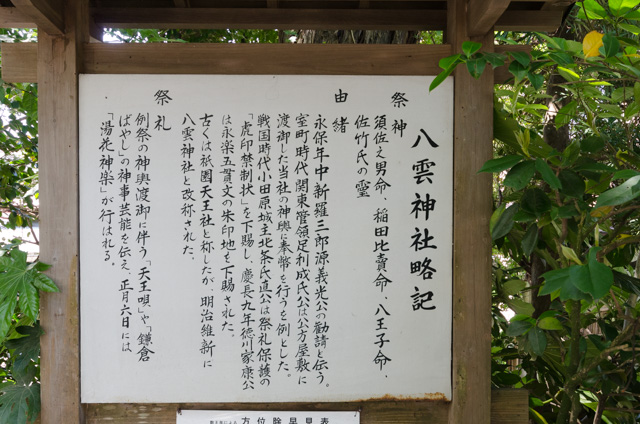 八雲神社略記
祭神
須佐之男命、稲田比賣命、八王子命、
佐竹氏の霊
由緒
永保年中新羅三郎源義光公の勧請と伝う。
室町時代関東管領足利成氏公は公方屋敷に
渡御した当社の神輿に奏幣を行うを例とした。
戦国時代小田原城主北条氏直公は祭礼保護の
「虎印禁制状」を下賜し、慶長九年徳川家康公
は永楽五貫文の朱印地を下賜された。
古くは祇園天王社と称したが、明治維新に
八雲神社と改称された。
祭礼
例祭の神輿渡御に伴う「天王唄」や「鎌倉
ばやし」の神事芸能を伝え、正月六日には
「湯花神楽」が行はれる。
方位除早見表